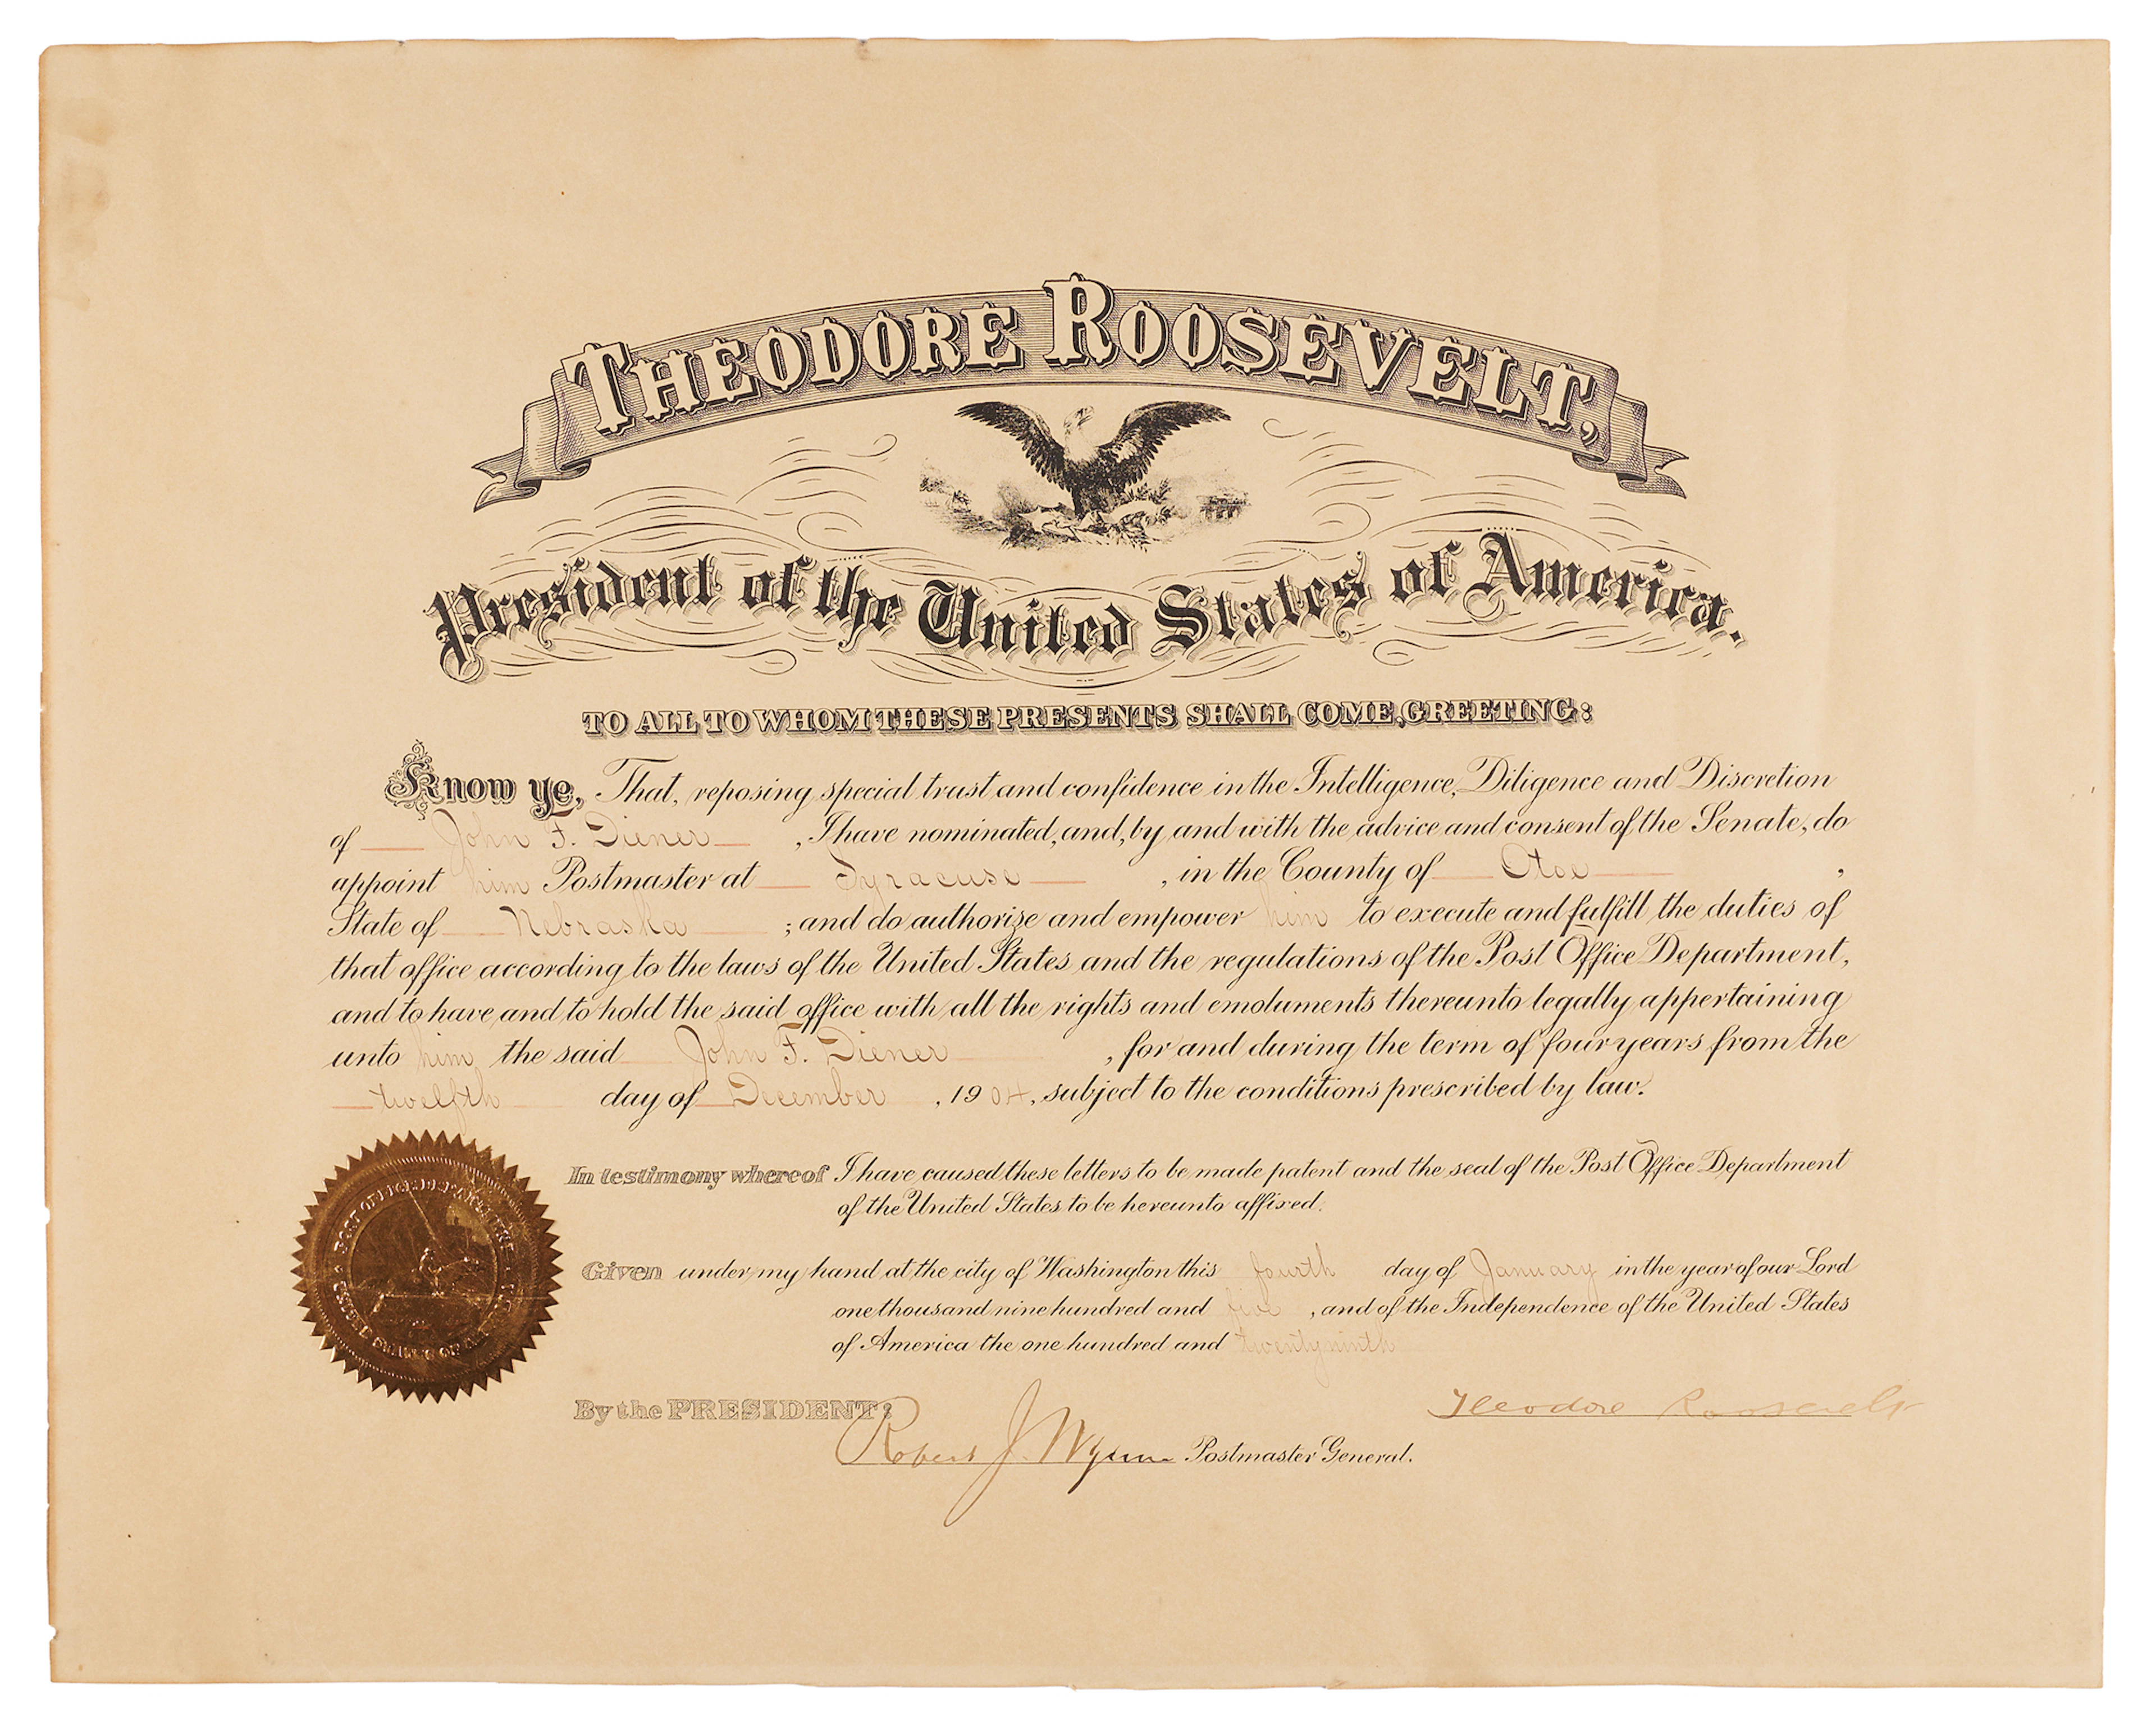 THEODORE ROOSEVELT,
President of the United States of America.
TO ALL TO WHOM THESE PRESENTS SHALL COME, GREETING:
Know ye, That, reposing special trust and confidence in the Intelligence, Diligence and Discretion
of John F. Diener, I have nominated, and, by and with the advice and consent of the Senate, do
appoint him Postmaster at Syracuse, in the County of Otoe,
State of Nebraska; and do authorize and empower him to execute and fulfill the duties of
that office according to the laws of the United States and the regulations of the Post Office Department,
and to have and to hold the said office with all the rights and emoluments thereunto legally appertaining
unto him the said John F. Diener, for and during the term of four years from the
twelfth day of December, 1904, subject to the conditions prescribed by law.
In testimony whereof I have caused these letters to be made patent and the seal of the Post Office Department
of the United States to be hereunto affixed.
Given under my hand at the city of Washington this fourth day of January in the year of our Lord
one thousand nine hundred and five, and of the Independence of the United States
of America the one hundred and twenty ninth
POST OFFICE DEPARTMENT
UNITED STATES OF
Theodore Roosevelt
By the PRESIDENT:
Robert J. Wynne Postmaster General.